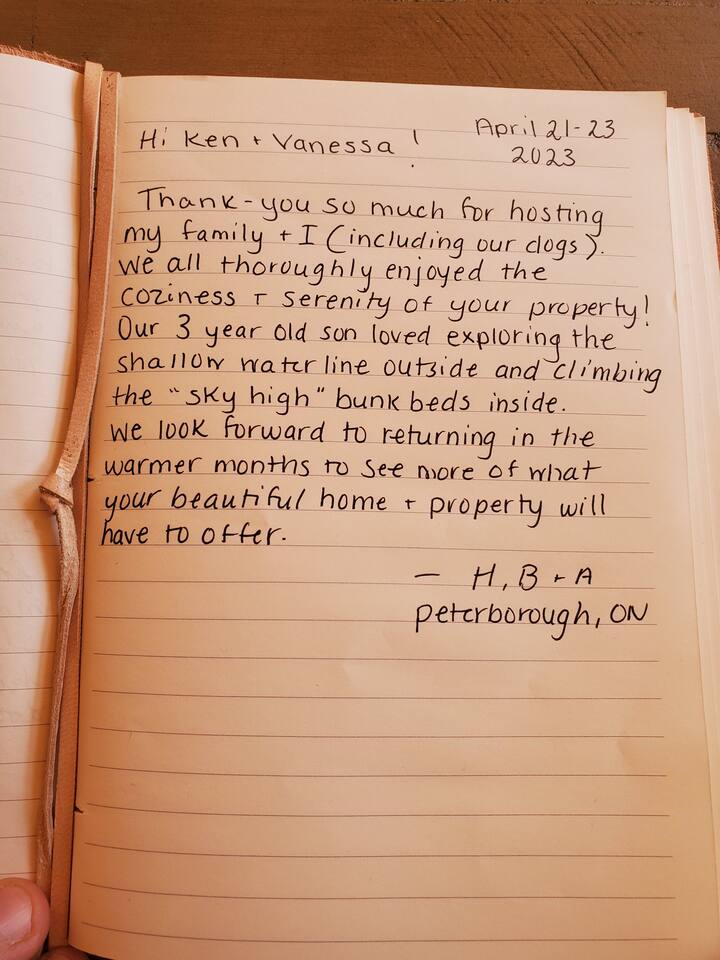 April 21-23
Hi Ken + Vanessa !
2023
Thank-you so much for hosting
my family + I (including our dogs).
We all thoroughly enjoyed the
coziness + serenity of your property!
Our 3 year old son loved exploring the
shallow water line outside and climbing
the "sky high" bunk beds inside.
We look forward to returning in the
warmer months to see more of what
your beautiful home + property will
have to offer.
— H, B + A
Peterborough, ON